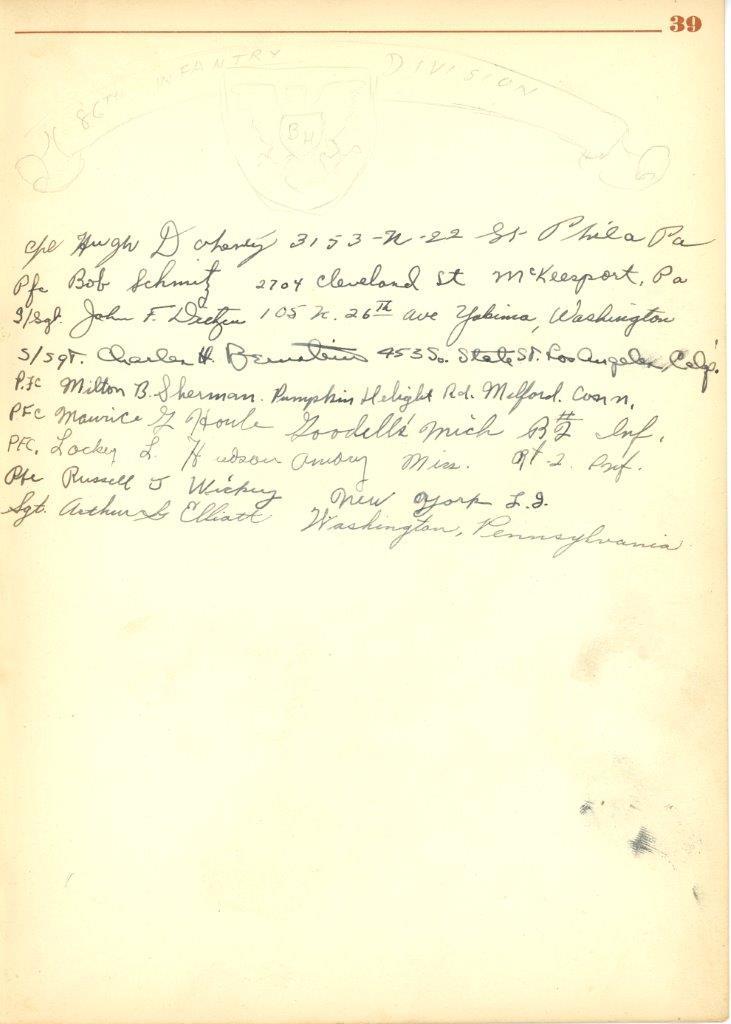 39
86TH INFANTRY DIVISION
BH
Cpl Hugh Doheny 3153-N-22 St Phila Pa
Pfc Bob Schmitz 2704 Cleveland St McKeesport, Pa
S/Sgt. John F. 105 N. 26th ave Yakima, Washington
S/Sgt. Charles H. Bernstein 453 So. State St. Los Angeles, Calif.
Pfc Milton B. Sherman. Pumpkin Helight Rd. Milford. Conn.
PFC Maurice G Houle Goodell's Mich B#2 Inf.
PFC. Lockey L. Hudson Amory Miss. Inf.
Pfc Russell J Wickey New York L.I.
Sgt. Arthur G Elliott Washington, Pennsylvania